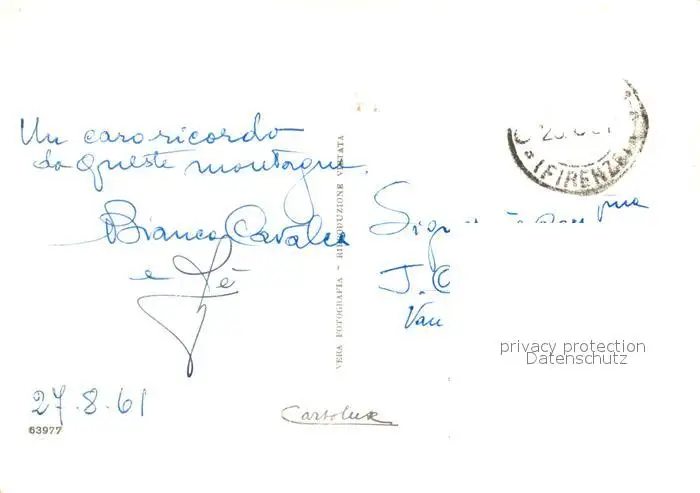 Un caro ricordo
da queste montagne.
Bianca Cavalca
e Fè
27.8.61
63977
VERA FOTOGRAFIA - RIPRODUZIONE VIETATA
Cartolux
(FIRENZE)
J. C
Van
privacy protection
Datenschutz